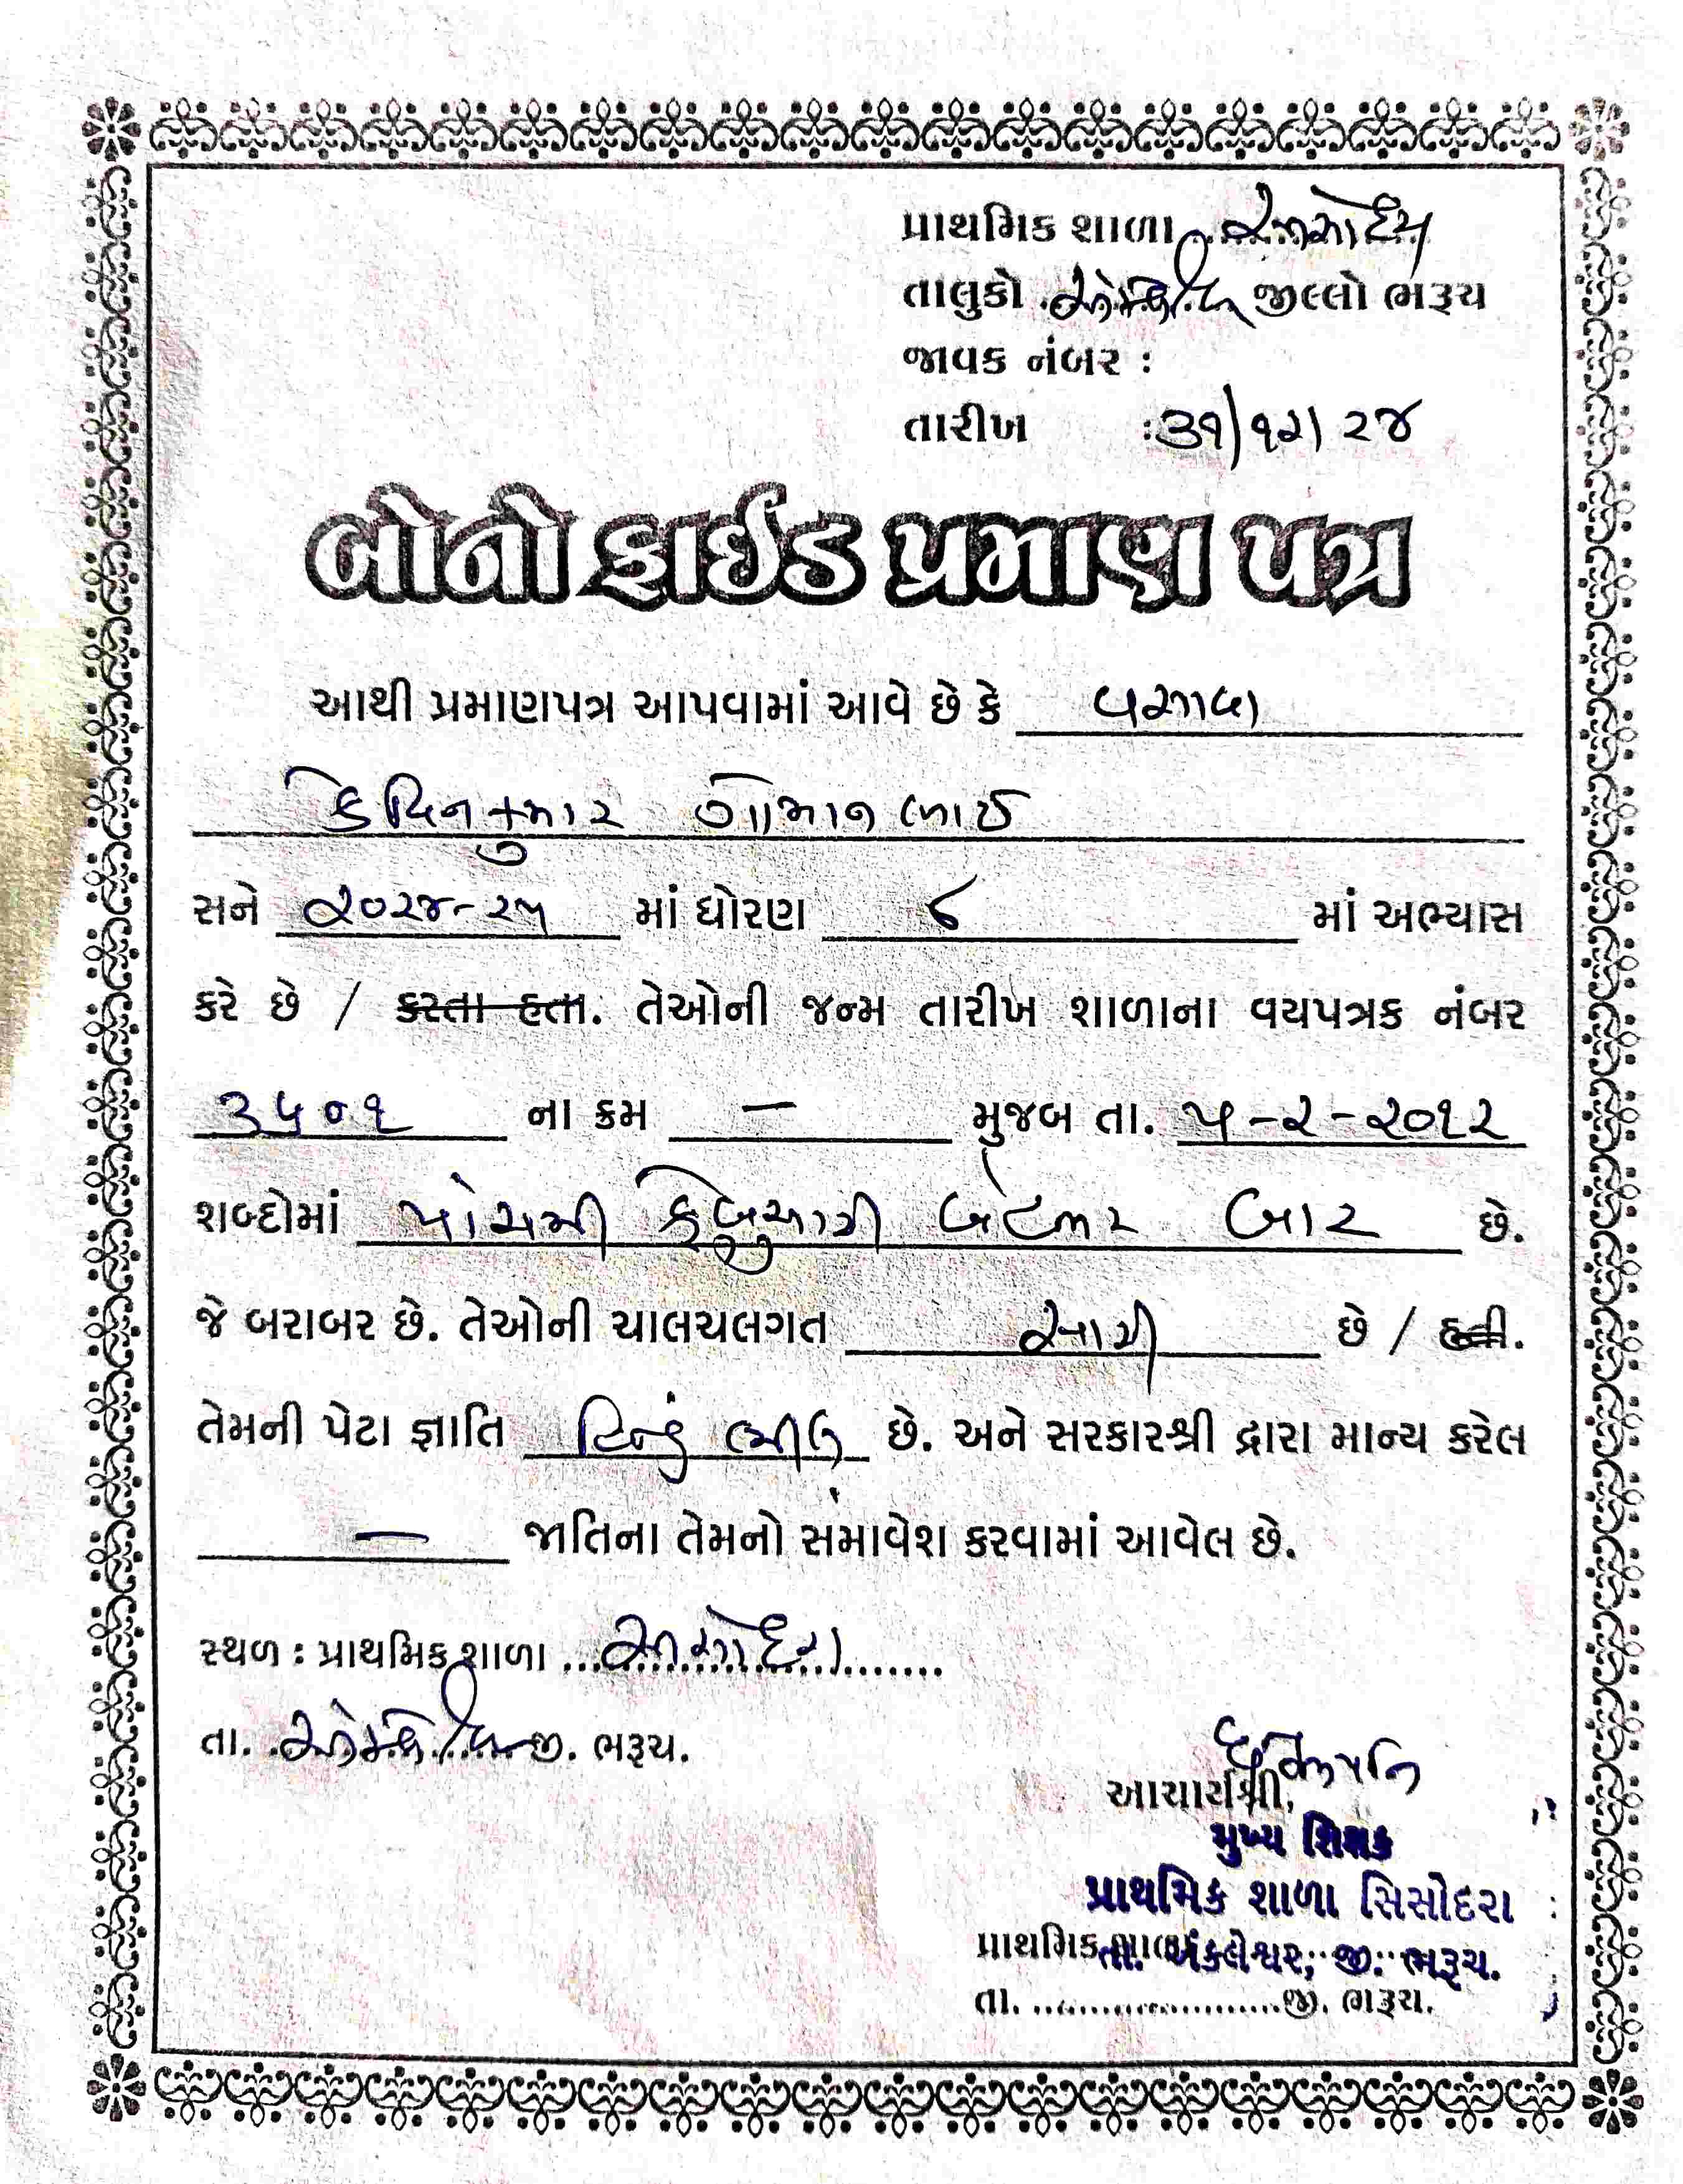 પ્રાથમિક શાળા
તાલુકો અંકલેશ્વર જીલ્લો ભરૂચ
જાવક નંબર :
તારીખ : ૩૧/૧૨/૨૪
બોનોફાઈડ પ્રમાણ પત્ર
આથી પ્રમાણપત્ર આપવામાં આવે છે કે વસાવા
કેવિનકુમાર ગોમાનભાઈ
સને ૨૦૨૪-૨૫ માં ધોરણ ૬ માં અભ્યાસ
કરે છે / કરતા હતા. તેઓની જન્મ તારીખ શાળાના વયપત્રક નંબર
૩૫૦૧ ના ક્રમ — મુજબ તા. ૫-૨-૨૦૧૨
શબ્દોમાં પાંચમી ફેબ્રુઆરી બેહજાર બાર છે.
જે બરાબર છે. તેઓની ચાલચલગત સારી છે / હતી.
તેમની પેટા જ્ઞાતિ હિન્દુ ભીલ છે. અને સરકારશ્રી દ્રારા માન્ય કરેલ
— જાતિના તેમનો સમાવેશ કરવામાં આવેલ છે.
સ્થળ : પ્રાથમિક શાળા
તા. અંકલેશ્વર જી. ભરૂચ.
આચાર્યશ્રી,
મુખ્ય શિક્ષક
પ્રાથમિક શાળા સિસોદરા
પ્રાથમિક શાળા
તા. અંકલેશ્વર, જી. ભરૂચ.
તા. ........................જી. ભરૂચ.